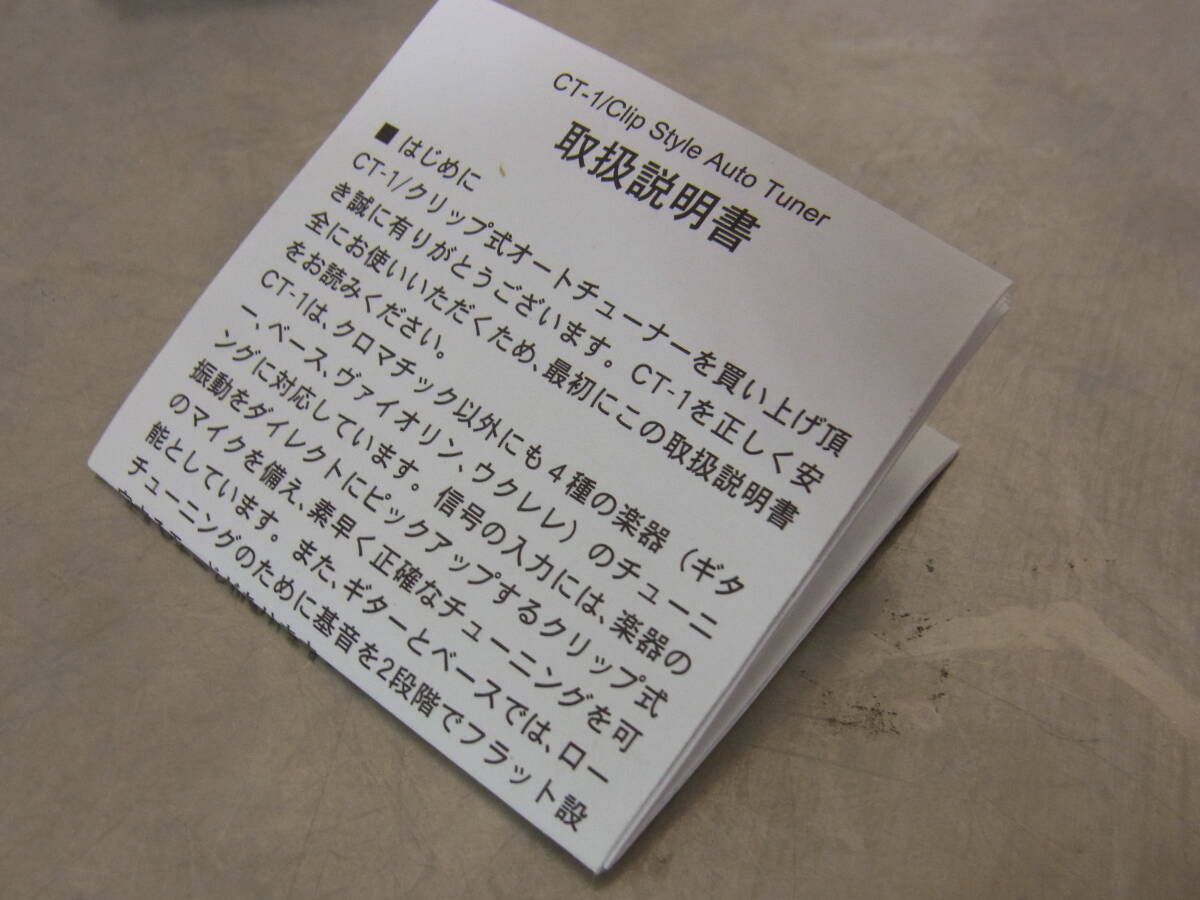 CT-1/Clip Style Auto Tuner
取扱説明書
■ はじめに
CT-1/クリップ式オートチューナーを買い上げ頂
き誠に有りがとうございます。CT-1を正しく安
全にお使いいただくため、最初にこの取扱説明書
をお読みください。
CT-1は、クロマチック以外にも４種の楽器（ギタ
ー、ベース、ヴァイオリン、ウクレレ）のチューニ
ングに対応しています。信号の入力には、楽器の
振動をダイレクトにピックアップするクリップ式
のマイクを備え、素早く正確なチューニングを可
能としています。また、ギターとベースでは、ロー
チューニングのために基音を2段階でフラット設